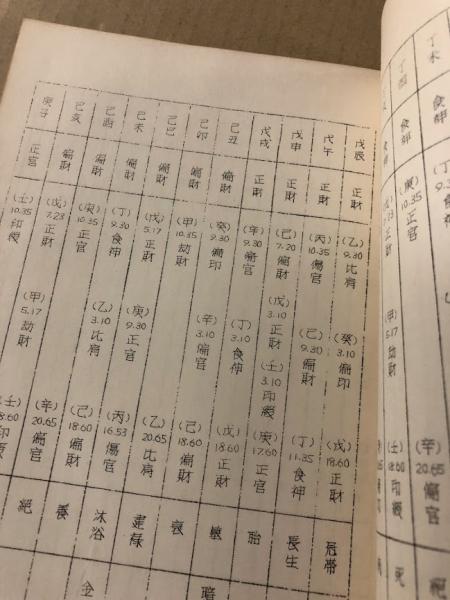 丁未
食神
丁酉
食神
(庚)
10.35
正官
(辛)
20.65
偏官
絶
(甲)
5.17
劫財
(壬)
18.60
印綬
死
戊辰
正財
(乙)
9.30
比肩
(癸)
3.10
偏印
(戊)
18.60
正財
冠帯
戊午
正財
(丙)
10.35
傷官
(己)
9.30
偏財
(丁)
11.35
食神
長生
戊申
正財
(己)
7.20
偏財
(戊)
3.10
正財
(壬)
3.10
印綬
(庚)
17.60
正官
胎
戊戌
正財
(辛)
9.30
偏官
(丁)
3.10
食神
(戊)
18.60
正財
己丑
偏財
(癸)
9.30
偏印
(辛)
3.10
偏官
(己)
18.60
偏財
衰
暗
己卯
偏財
(甲)
10.35
劫財
(乙)
20.65
比肩
建禄
己巳
偏財
(戊)
5.17
正財
(庚)
9.30
正官
(丙)
16.53
傷官
沐浴
金
己未
偏財
(丁)
9.30
食神
(乙)
3.10
比肩
(己)
18.60
偏財
養
己酉
偏財
(庚)
10.35
正官
(辛)
20.65
偏官
絶
己亥
偏財
(戊)
7.23
正財
(甲)
5.17
劫財
(壬)
18.60
印綬
庚子
正官
(壬)
10.35
印綬